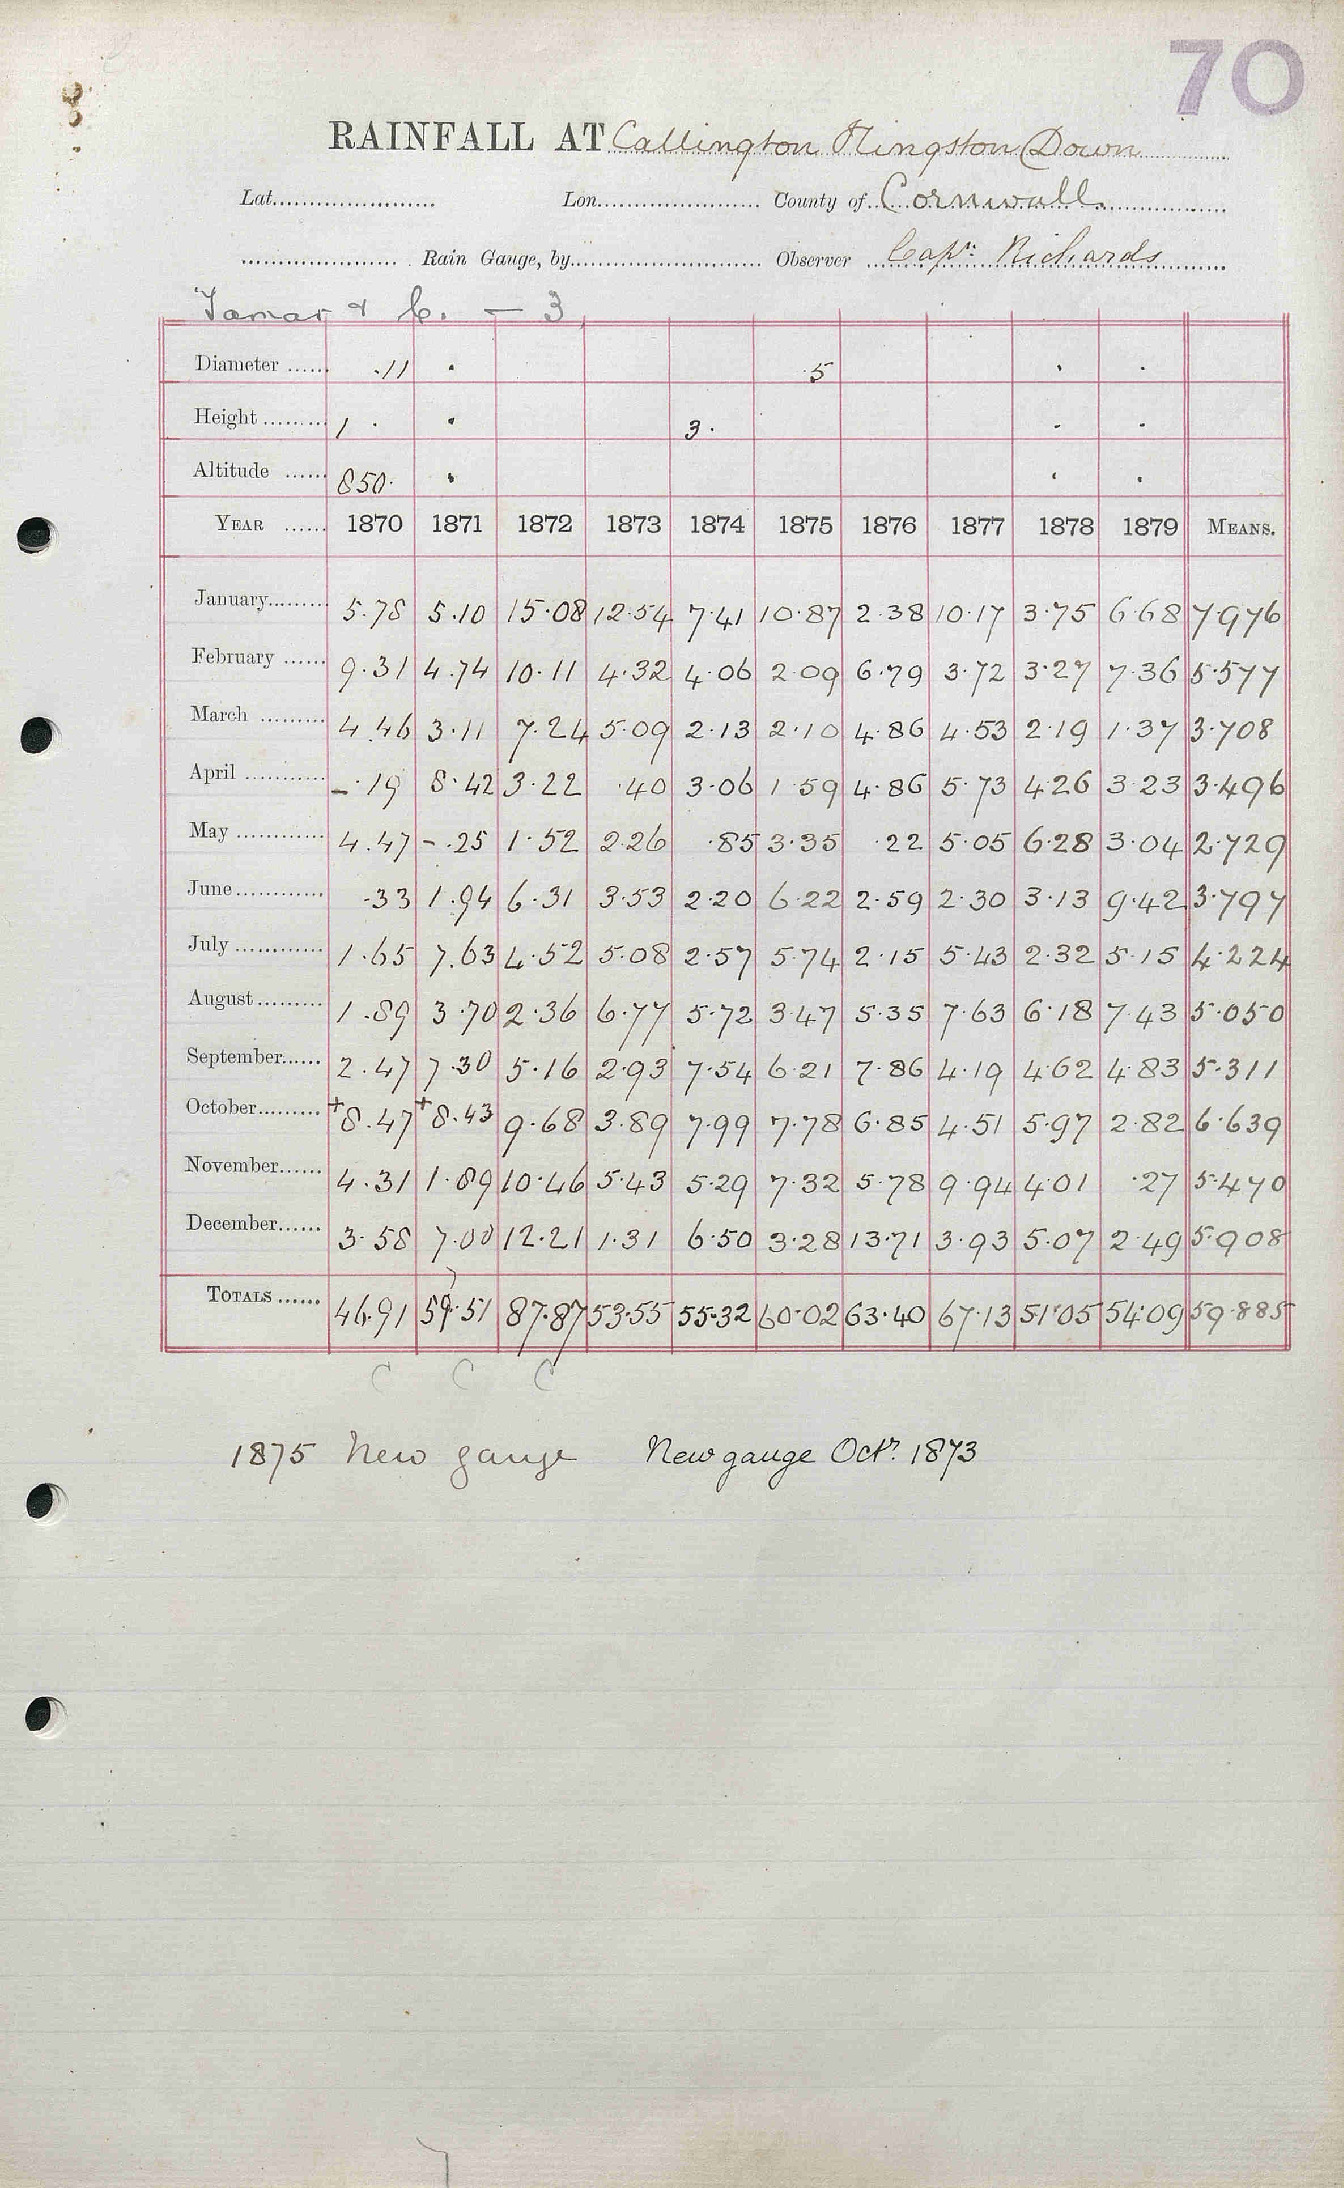 70
RAINFALL AT Callington Kingston Down
Lat. Lon. County of Cornwall.
Rain Gauge, by Observer Capn. Richards
Tamar & C. — 3
Diameter .11 . 5 . .
Height 1 . . 3. . .
Altitude 850. . . .
YEAR 1870 1871 1872 1873 1874 1875 1876 1877 1878 1879 MEANS.
January 5.78 5.10 15.08 12.54 7.41 10.87 2.38 10.17 3.75 6.68 7.976
February 9.31 4.74 10.11 4.32 4.06 2.09 6.79 3.72 3.27 7.36 5.577
March 4.46 3.11 7.24 5.09 2.13 2.10 4.86 4.53 2.19 1.37 3.708
April -.19 8.42 3.22 .40 3.06 1.59 4.86 5.73 4.26 3.23 3.496
May 4.47 -.25 1.52 2.26 .85 3.35 .22 5.05 6.28 3.04 2.729
June .33 1.94 6.31 3.53 2.20 6.22 2.59 2.30 3.13 9.42 3.797
July 1.65 7.63 4.52 5.08 2.57 5.74 2.15 5.43 2.32 5.15 4.224
August 1.89 3.70 2.36 6.77 5.72 3.47 5.35 7.63 6.18 7.43 5.050
September 2.47 7.30 5.16 2.93 7.54 6.21 7.86 4.19 4.62 4.83 5.311
October +8.47 +8.43 9.68 3.89 7.99 7.78 6.85 4.51 5.97 2.82 6.639
November 4.31 1.89 10.46 5.43 5.29 7.32 5.78 9.94 4.01 .27 5.470
December 3.58 7.00 12.21 1.31 6.50 3.28 13.71 3.93 5.07 2.49 5.908
TOTALS 46.91 59.51 87.87 53.55 55.32 60.02 63.40 67.13 51.05 54.09 59.885
C C C
1875 New gauge New gauge Octr. 1873